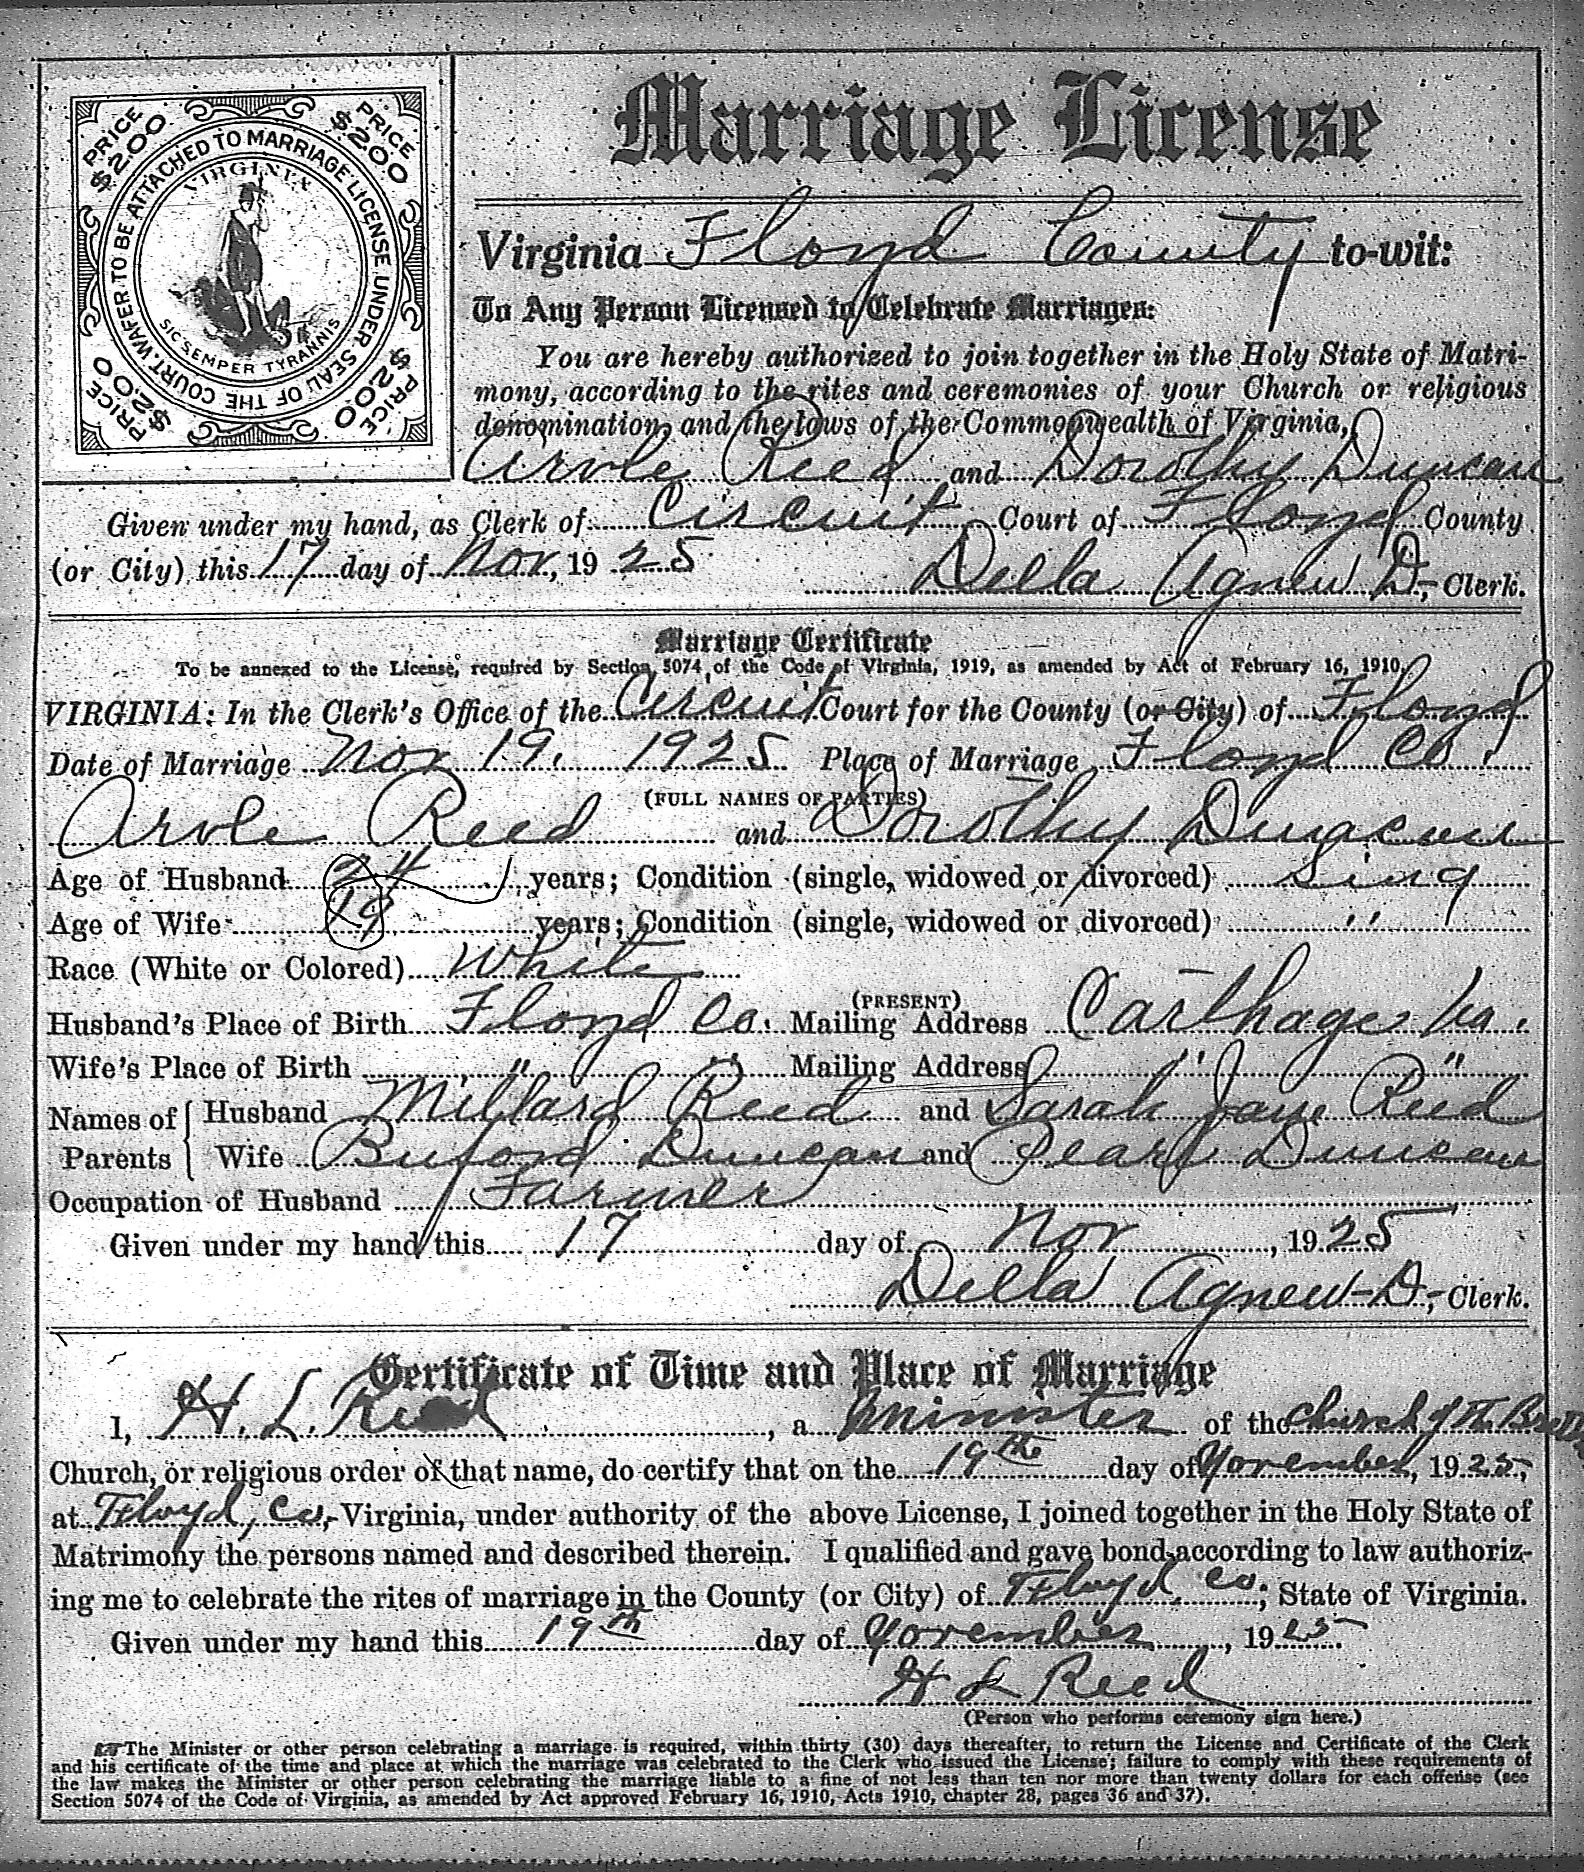 Marriage License
PRICE $2.00
PRICE $2.00
PRICE $2.00
PRICE $2.00
WAFER TO BE ATTACHED TO MARRIAGE LICENSE UNDER SEAL OF THE COURT.
VIRGINIA
SIC SEMPER TYRANNIS
Virginia Floyd County to-wit:
To Any Person Licensed to Celebrate Marriages:
You are hereby authorized to join together in the Holy State of Matri-
mony, according to the rites and ceremonies of your Church or religious
denomination, and the laws of the Commonwealth of Virginia,
Arvle Reed and Dorothy Duncan
Given under my hand, as Clerk of Circuit Court of Floyd County
(or City) this 17 day of Nov, 19 25
Della Agnew D, Clerk.
Marriage Certificate
To be annexed to the License, required by Section 5074 of the Code of Virginia, 1919, as amended by Act of February 16, 1910.
VIRGINIA: In the Clerk's Office of the Circuit Court for the County (or City) of Floyd
Date of Marriage Nov 19, 1925 Place of Marriage Floyd Co.
(FULL NAMES OF PARTIES)
Arvle Reed and Dorothy Duncan
Age of Husband 24 years; Condition (single, widowed or divorced) Sing
Age of Wife 19 years; Condition (single, widowed or divorced) "
Race (White or Colored) White
Husband's Place of Birth Floyd Co. (PRESENT) Mailing Address Carthage Va.
Wife's Place of Birth " " Mailing Address " "
Names of Parents { Husband Millard Reed and Sarah Jane Reed
Wife Buford Duncan and Pearl Duncan
Occupation of Husband Farmer
Given under my hand this 17 day of Nov, 1925
Della Agnew - D, Clerk.
Certificate of Time and Place of Marriage
I, H. L. Reed, a Minister of the Church of the
Church, or religious order of that name, do certify that on the 19th day of November, 1925,
at Floyd, Co, Virginia, under authority of the above License, I joined together in the Holy State of
Matrimony the persons named and described therein. I qualified and gave bond according to law authoriz-
ing me to celebrate the rites of marriage in the County (or City) of Floyd Co, State of Virginia.
Given under my hand this 19th day of November, 1925
H L Reed
(Person who performs ceremony sign here.)
☞The Minister or other person celebrating a marriage is required, within thirty (30) days thereafter, to return the License and Certificate of the Clerk
and his certificate of the time and place at which the marriage was celebrated to the Clerk who issued the License; failure to comply with these requirements of
the law makes the Minister or other person celebrating the marriage liable to a fine of not less than ten nor more than twenty dollars for each offense (see
Section 5074 of the Code of Virginia, as amended by Act approved February 16, 1910, Acts 1910, chapter 28, pages 36 and 37).